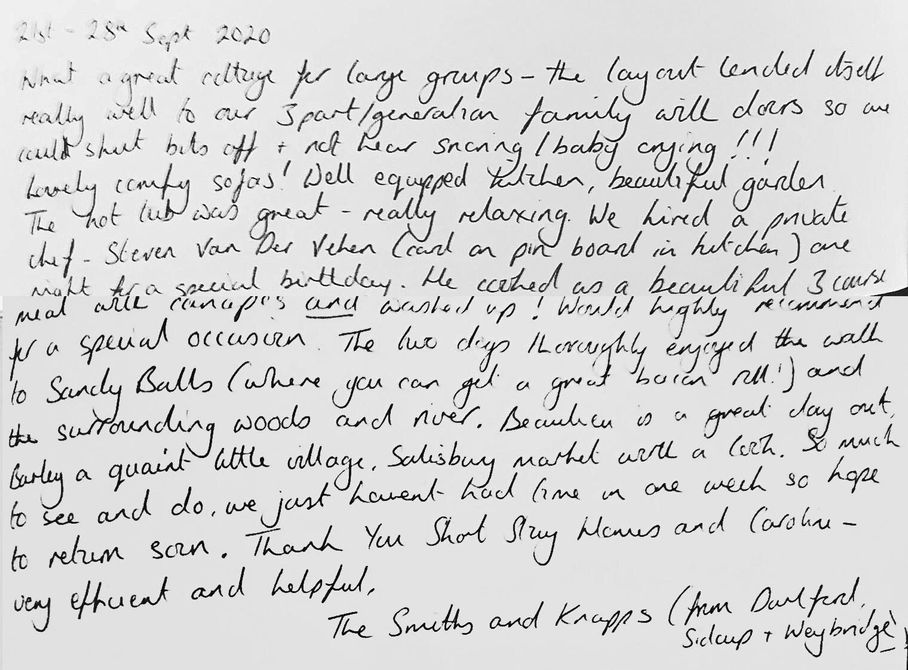 21st - 28th Sept 2020
What a great cottage for large groups - the layout lended itself
really well to our 3 part/generation family with doors so we
could shut bits off + not hear snoring / baby crying !!!
Lovely comfy sofas! Well equipped kitchen, beautiful garden
The hot tub was great - really relaxing. We hired a private
chef - Steven Van Der (card on pin board in kitchen) one
night for a special birthday. He cooked us a beautiful 3 course
meal with canapes and washed up! Would highly recommend
for a special occasion. The two dogs thoroughly enjoyed the walk
to Sandy Balls (where you can get a great bacon roll!) and
the surrounding woods and river. Beaulieu is a great day out,
a quaint little village, Salisbury market worth a look. So much
to see and do, we just havent had time in one week so hope
to return soon. Thank You Short Stay Homes and Caroline -
very efficient and helpful.
The Smiths and Knapps (from Dartford,
Sidcup + Weybridge)